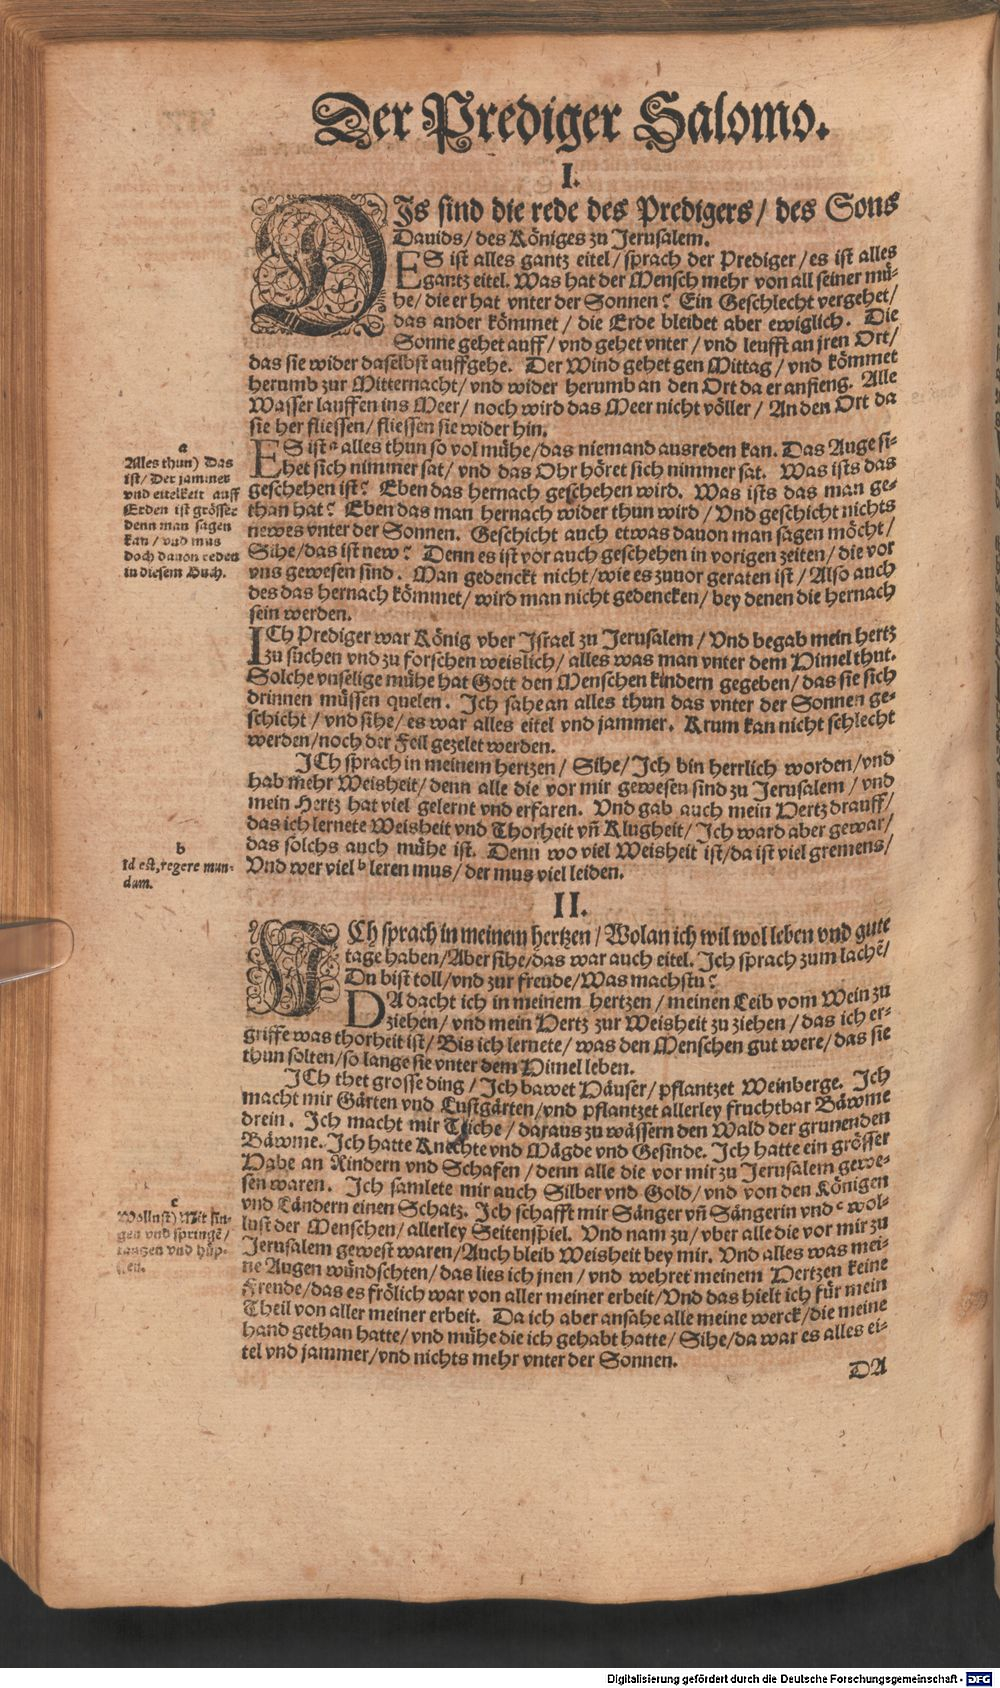 Der Prediger Salomo.
I.
DIs sind die rede des Predigers/ des Sons
Dauids/ des Königes zu Jerusalem.
ES ist alles gantz eitel/ sprach der Prediger/ es ist alles
gantz eitel. Was hat der Mensch mehr von all seiner mü-
he/ die er hat vnter der Sonnen? Ein Geschlecht vergehet/
das ander kömmet/ die Erde bleibet aber ewiglich. Die
Sonne gehet auff/ vnd gehet vnter/ vnd leufft an jren Ort/
das sie wider daselbst auffgehe. Der Wind gehet gen Mittag/ vnd kömmet
herumb zur Mitternacht/ vnd wider herumb an den Ort da er anfieng. Alle
Wasser lauffen ins Meer/ noch wird das Meer nicht völler/ An den Ort da
sie her fliessen/ fliessen sie wider hin.
ES ist a alles thun so vol mühe/ das niemand ausreden kan. Das Auge si-
het sich nimmer sat/ vnd das Ohr höret sich nimmer sat. Was ists das
geschehen ist? Eben das hernach geschehen wird. Was ists das man ge-
than hat? Eben das man hernach wider thun wird/ Vnd geschicht nichts
newes vnter der Sonnen. Geschicht auch etwas dauon man sagen möcht/
Sihe/ das ist new? Denn es ist vor auch geschehen in vorigen zeiten/ die vor
vns gewesen sind. Man gedenckt nicht/ wie es zuuor geraten ist/ Also auch
des das hernach kömmet/ wird man nicht gedencken/ bey denen die hernach
sein werden.
a
Alles thun) Das
ist/ Der jammer
vnd eitelkeit auff
Erden ist grösser
denn man sagen
kan/ vnd mus
doch dauon reden
in diesem Buch.
ICh Prediger war König vber Israel zu Jerusalem/ Vnd begab mein hertz
zu suchen vnd zu forschen weislich/ alles was man vnter dem Himel thut.
Solche vnselige mühe hat Gott den Menschen kindern gegeben/ das sie sich
drinnen müssen quelen. Ich sahe an alles thun das vnter der Sonnen ge-
schicht/ vnd sihe/ es war alles eitel vnd jammer. Krum kan nicht schlecht
werden/ noch der Feil gezelet werden.
ICh sprach in meinem hertzen/ Sihe/ Ich bin herrlich worden/ vnd
hab mehr Weisheit/ denn alle die vor mir gewesen sind zu Jerusalem/ vnd
mein Hertz hat viel gelernt vnd erfaren. Vnd gab auch mein Hertz drauff/
das ich lernete Weisheit vnd Thorheit vñ Klugheit/ Ich ward aber gewar/
das solchs auch mühe ist. Denn wo viel Weisheit ist/ da ist viel gremens/
Vnd wer viel b leren mus/ der mus viel leiden.
b
Id est, regere mun-
dum.
II.
ICh sprach in meinem hertzen/ Wolan ich wil wol leben vnd gute
tage haben/ Aber sihe/ das war auch eitel. Ich sprach zum lachẽ/
Du bist toll/ vnd zur freude/ Was machstu?
DA dacht ich in meinem hertzen/ meinen Leib vom Wein zu
ziehen/ vnd mein Hertz zur Weisheit zu ziehen/ das ich er-
griffe was thorheit ist/ Bis ich lernete/ was den Menschen gut were/ das sie
thun solten/ so lange sie vnter dem Himel leben.
ICh thet grosse ding/ Ich bawet Häuser/ pflantzet Weinberge. Ich
macht mir Gärten vnd Lustgärten/ vnd pflantzet allerley fruchtbar Bäwme
drein. Ich macht mir Teiche/ daraus zu wässern den Wald der grunenden
Bäwme. Ich hatte Knechte vnd Mägde vnd Gesinde. Ich hatte ein grösser
Habe an Rindern vnd Schafen/ denn alle die vor mir zu Jerusalem gewe-
sen waren. Ich samlete mir auch Silber vnd Gold/ vnd von den Königen
vnd Ländern einen Schatz. Ich schafft mir Sänger vñ Sängerin vnd c wol-
lust der Menschen/ allerley Seitenspiel. Vnd nam zu/ vber alle die vor mir zu
Jerusalem gewest waren/ Auch bleib Weisheit bey mir. Vnd alles was mei-
ne Augen wündschten/ das lies ich jnen/ vnd wehret meinem Hertzen keine
Freude/ das es frölich war von aller meiner erbeit/ Vnd das hielt ich für mein
Theil von aller meiner erbeit. Da ich aber ansahe alle meine werck/ die meine
hand gethan hatte/ vnd mühe die ich gehabt hatte/ Sihe/ da war es alles ei-
tel vnd jammer/ vnd nichts mehr vnter der Sonnen.
c
Wollust) Mit sin-
gen vnd springẽ/
tantzen vnd hüp-
fen.
DA
Digitalisierung gefördert durch die Deutsche Forschungsgemeinschaft - DFG